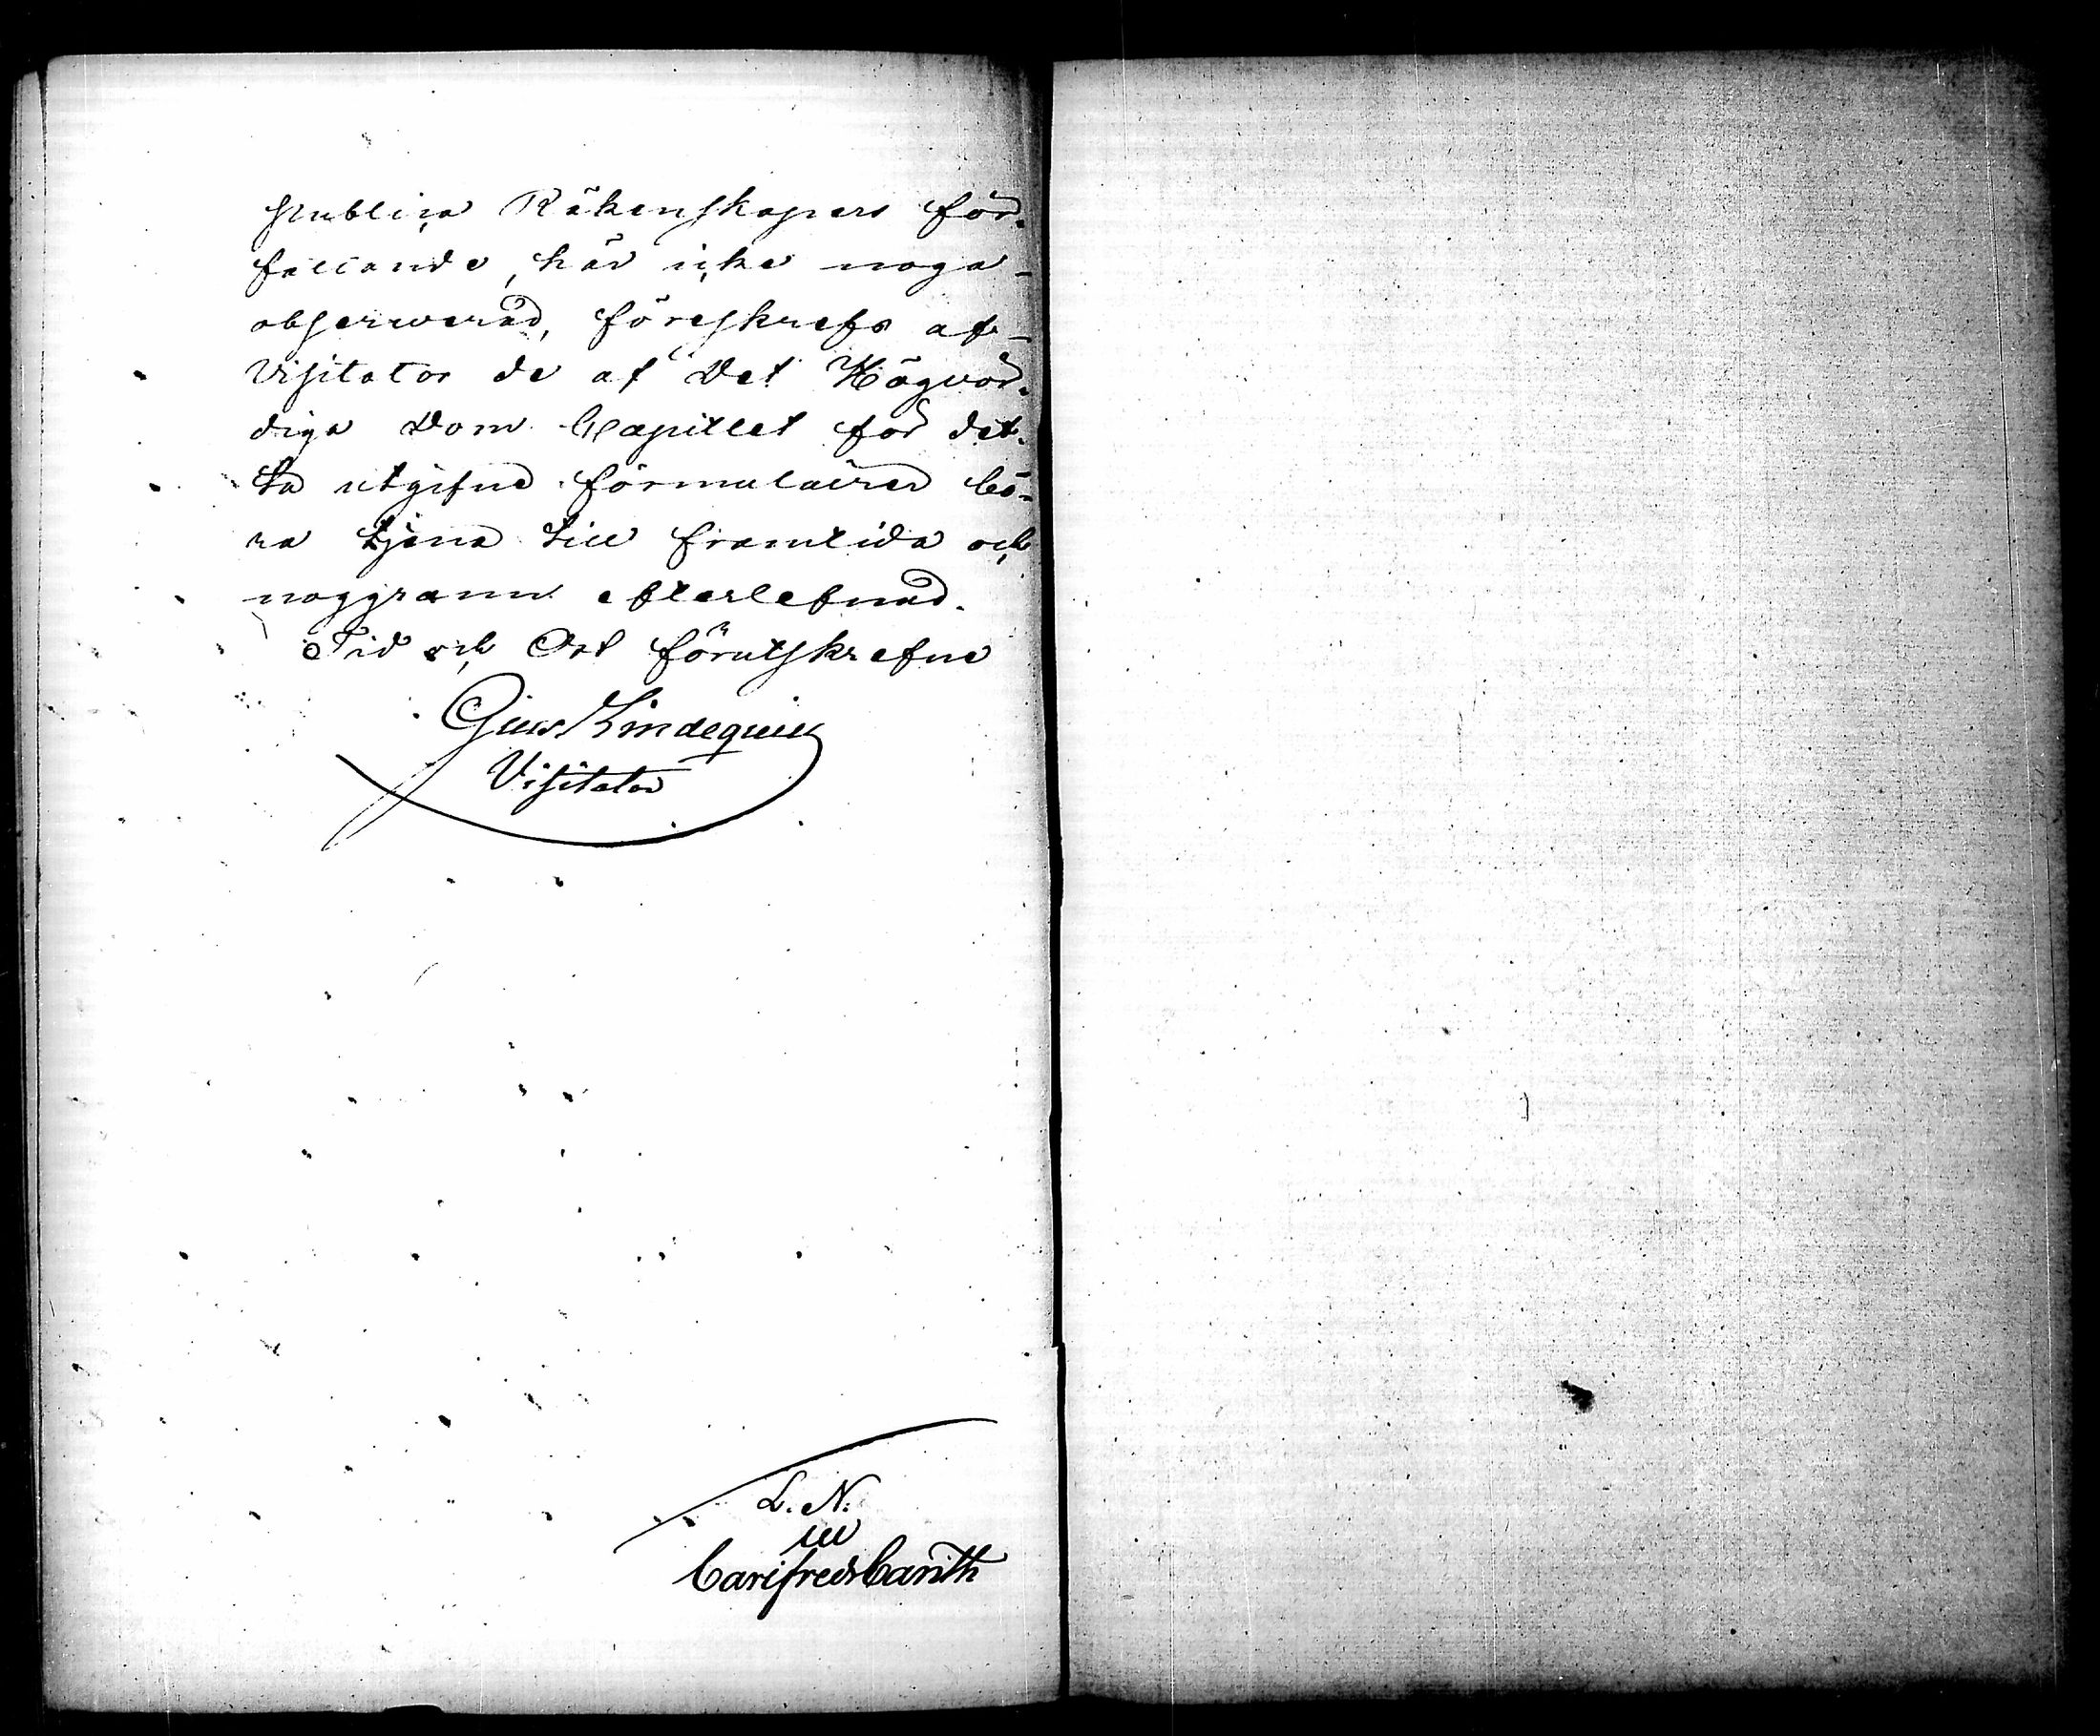 publica Räkenskapers för-
fattande, här icke noga
observerad, föreskrefs af
Visitator de af Det Högvör-
diga Dom Capitlet för det-
ta utgifne formulairer bö-
ra tjena till framtida och
noggrann efterlefnad.
Tid och Ort förutskrefne
Gust Lindequist
Visitator
L. N.